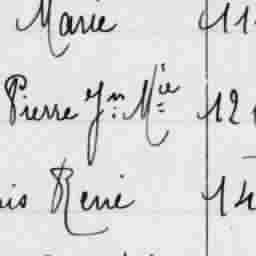 Marie 11
Pierre Jn Mie 12
is René 14